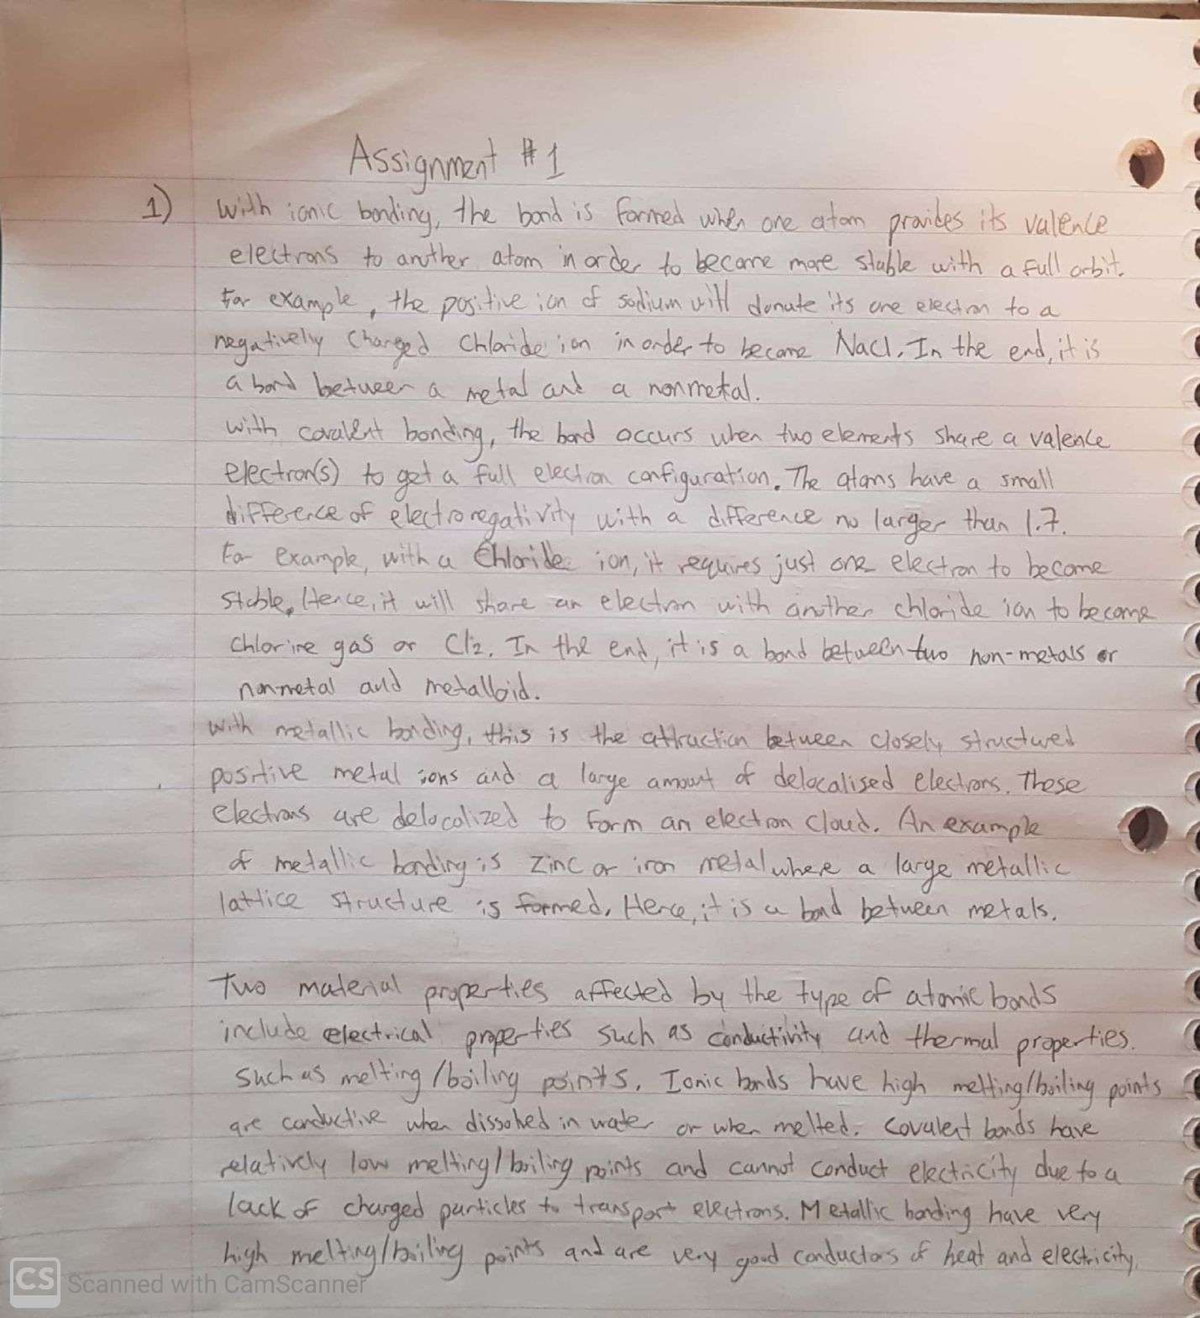 Assignment #1
1) With ionic bonding, the bond is formed when one atom provides its valence
electrons to another atom in order to become more stable with a full orbit.
For example, the positive ion of sodium will donate its one electron to a
negatively charged Chloride ion in order to become NaCl. In the end, it is
a bond between a metal and a nonmetal.
With covalent bonding, the bond occurs when two elements share a valence
electron(s) to get a full electron configuration. The atoms have a small
difference of electronegativity with a difference no larger than 1.7.
For example, with a Chloride ion, it requires just one electron to become
stable. Hence, it will share an electron with another chloride ion to become
chlorine gas or Cl2. In the end, it is a bond between two non-metals or
nonmetal and metalloid.
With metallic bonding, this is the attraction between closely structured
positive metal ions and a large amount of delocalised electrons. These
electrons are delocalized to form an electron cloud. An example
of metallic bonding is zinc or iron metal where a large metallic
lattice structure is formed. Hence, it is a bond between metals.
Two material properties affected by the type of atomic bonds
include electrical properties such as conductivity and thermal properties.
Such as melting/boiling points. Ionic bonds have high melting/boiling points
are conductive when dissolved in water or when melted. Covalent bonds have
relatively low melting/boiling points and cannot conduct electricity due to a
lack of charged particles to transport electrons. Metallic bonding have very
high melting/boiling points and are very good conductors of heat and electricity.
CS Scanned with CamScanner